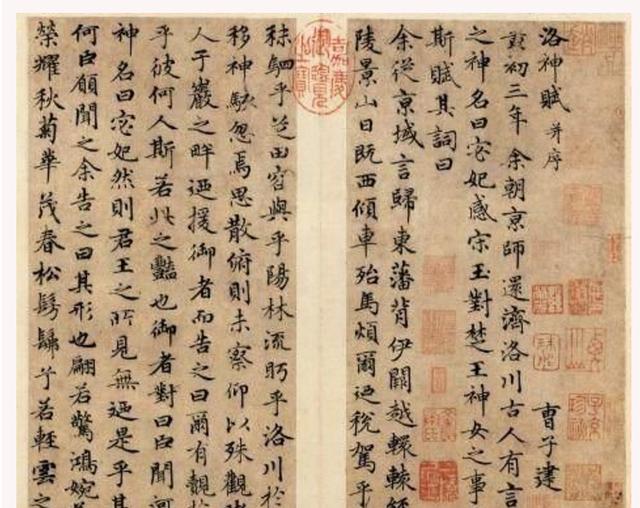 洛神賦 并序
曹子建
黃初三年余朝京師還濟洛川古人有言
之神名曰宓妃感宋玉對楚王神女之事
斯賦其詞曰
余從京域言歸東藩背伊闕越轘轅經
陵景山日既西傾車殆馬煩爾迺稅駕乎
嘉慶御覽之寶
秣駟乎芝田容與乎陽林流眄乎洛川於
移神駭忽焉思散俯則未察仰以殊觀
人于巖之畔迺援御者而告之曰爾有覿於
乎彼何人斯若此之豔也御者對曰臣聞河
神名曰宓妃然則君王之所見無迺是乎其
何臣願聞之余告之曰其形也翩若驚鴻婉
榮耀秋菊華茂春松髣髴兮若輕雲之